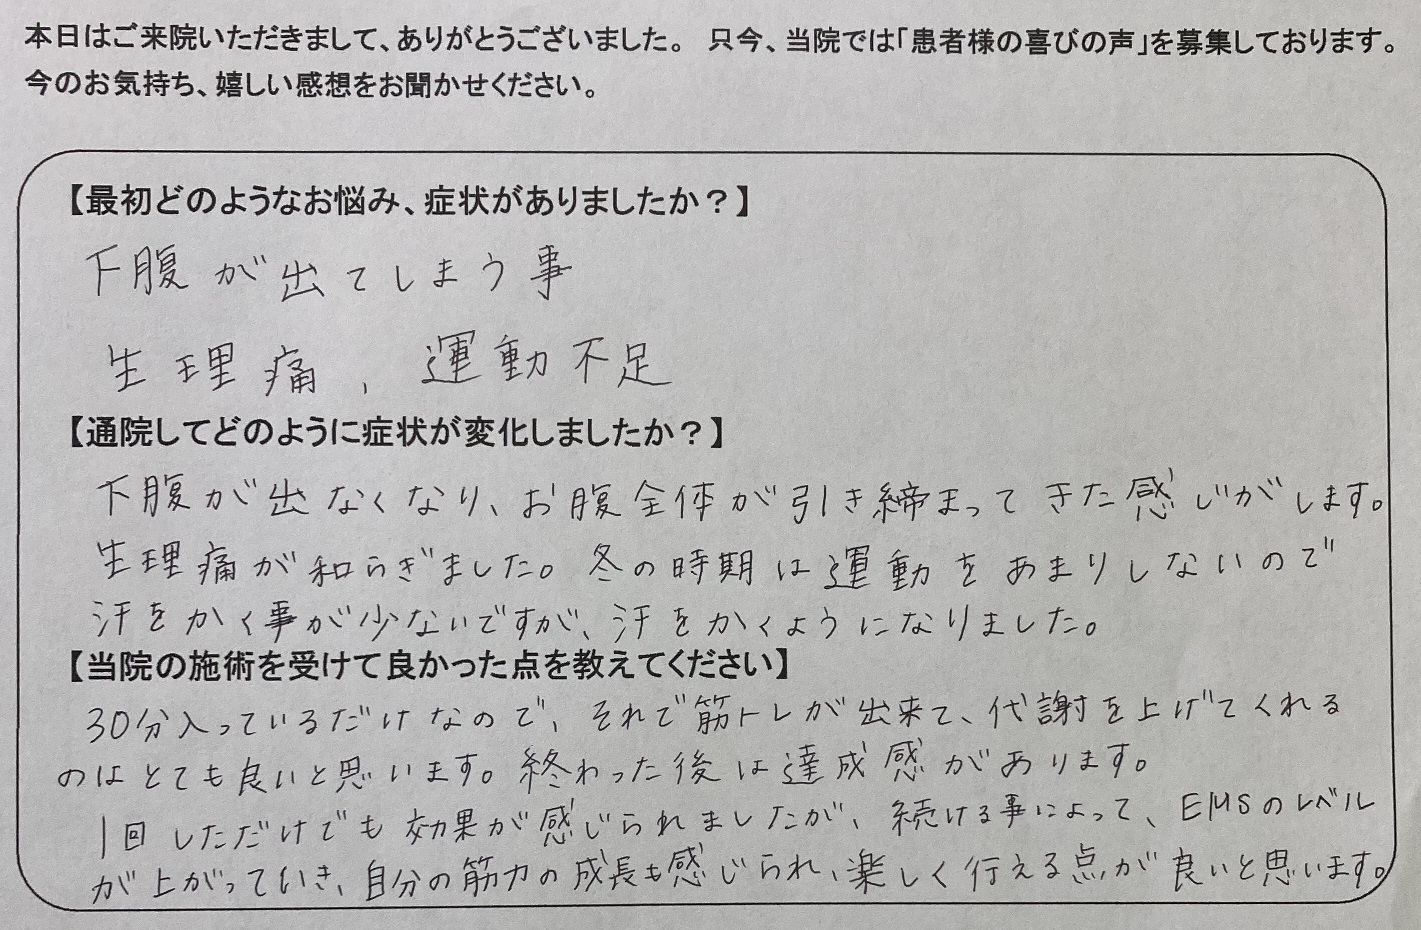 本日はご来院いただきまして、ありがとうございました。 只今、当院では「患者様の喜びの声」を募集しております。
今のお気持ち、嬉しい感想をお聞かせください。
【最初どのようなお悩み、症状がありましたか？】
下腹が出てしまう事
生理痛、運動不足
【通院してどのように症状が変化しましたか？】
下腹が出なくなり、お腹全体が引き締まってきた感じがします。
生理痛が和らぎました。冬の時期は運動をあまりしないので
汗をかく事が少ないですが、汗をかくようになりました。
【当院の施術を受けて良かった点を教えてください】
30分入っているだけなので、それで筋トレが出来て、代謝を上げてくれる
のはとても良いと思います。終わった後は達成感があります。
1回しただけでも効果が感じられましたが、続ける事によって、EMSのレベル
が上がっていき、自分の筋力の成長も感じられ、楽しく行える点が良いと思います。